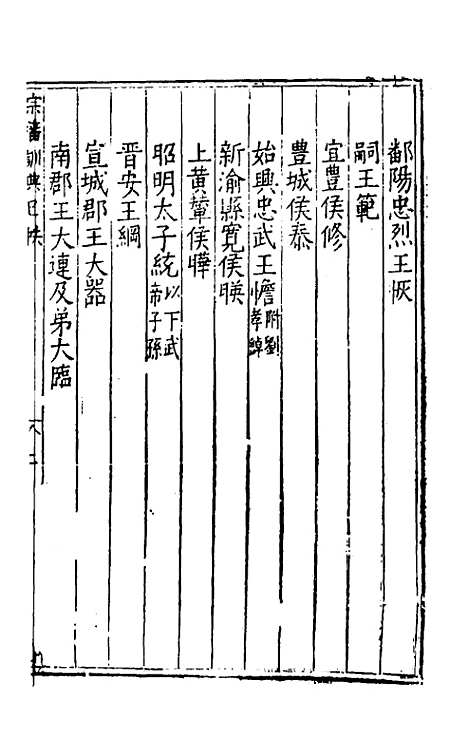 鄱陽忠烈王恢
嗣王範
宜豊侯修
豊城侯泰
始興忠武王憺附劉孝綽
新渝縣寛侯暎
上黄鞏侯曄
昭明太子統以下武帝子孫
晋安王綱
宣城郡王大器
南郡王大連及弟大臨
宗藩訓典